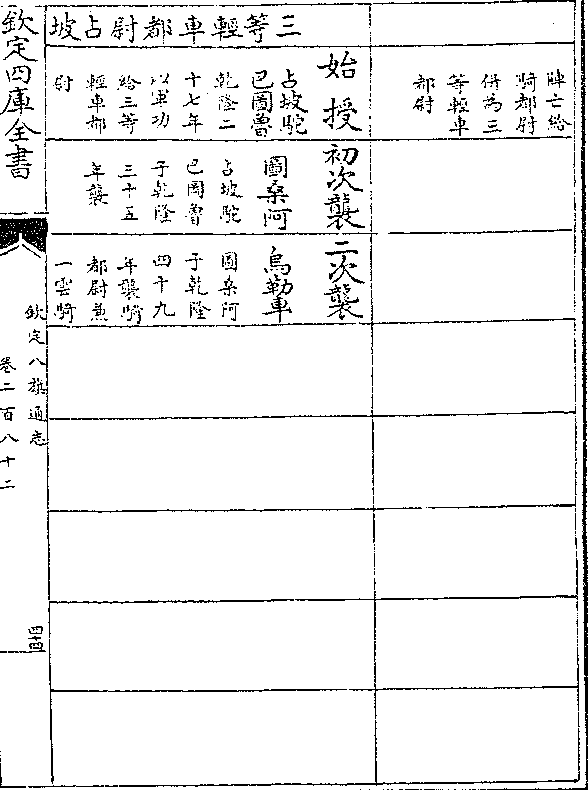 陣亡給
騎都尉
併為三
等輕車
都尉
三等輕車都尉占坡
始授
占坡駝
巴圖魯
乾隆二
十七年
以軍功
給三等
輕車都
尉
初次襲
圖桑阿
占坡駝
巴圖魯
于乾隆
三十五
年襲
二次襲
烏勒車
圖桑阿
于乾隆
四十九
年襲騎
都尉兼
一雲騎
欽定四庫全書
欽定八旗通志
卷二百八十二
四十四